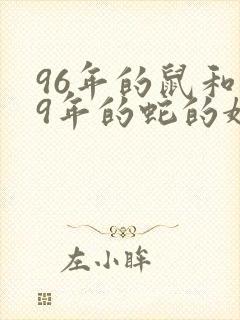 96年的鼠和
9年的蛇的
左小眸